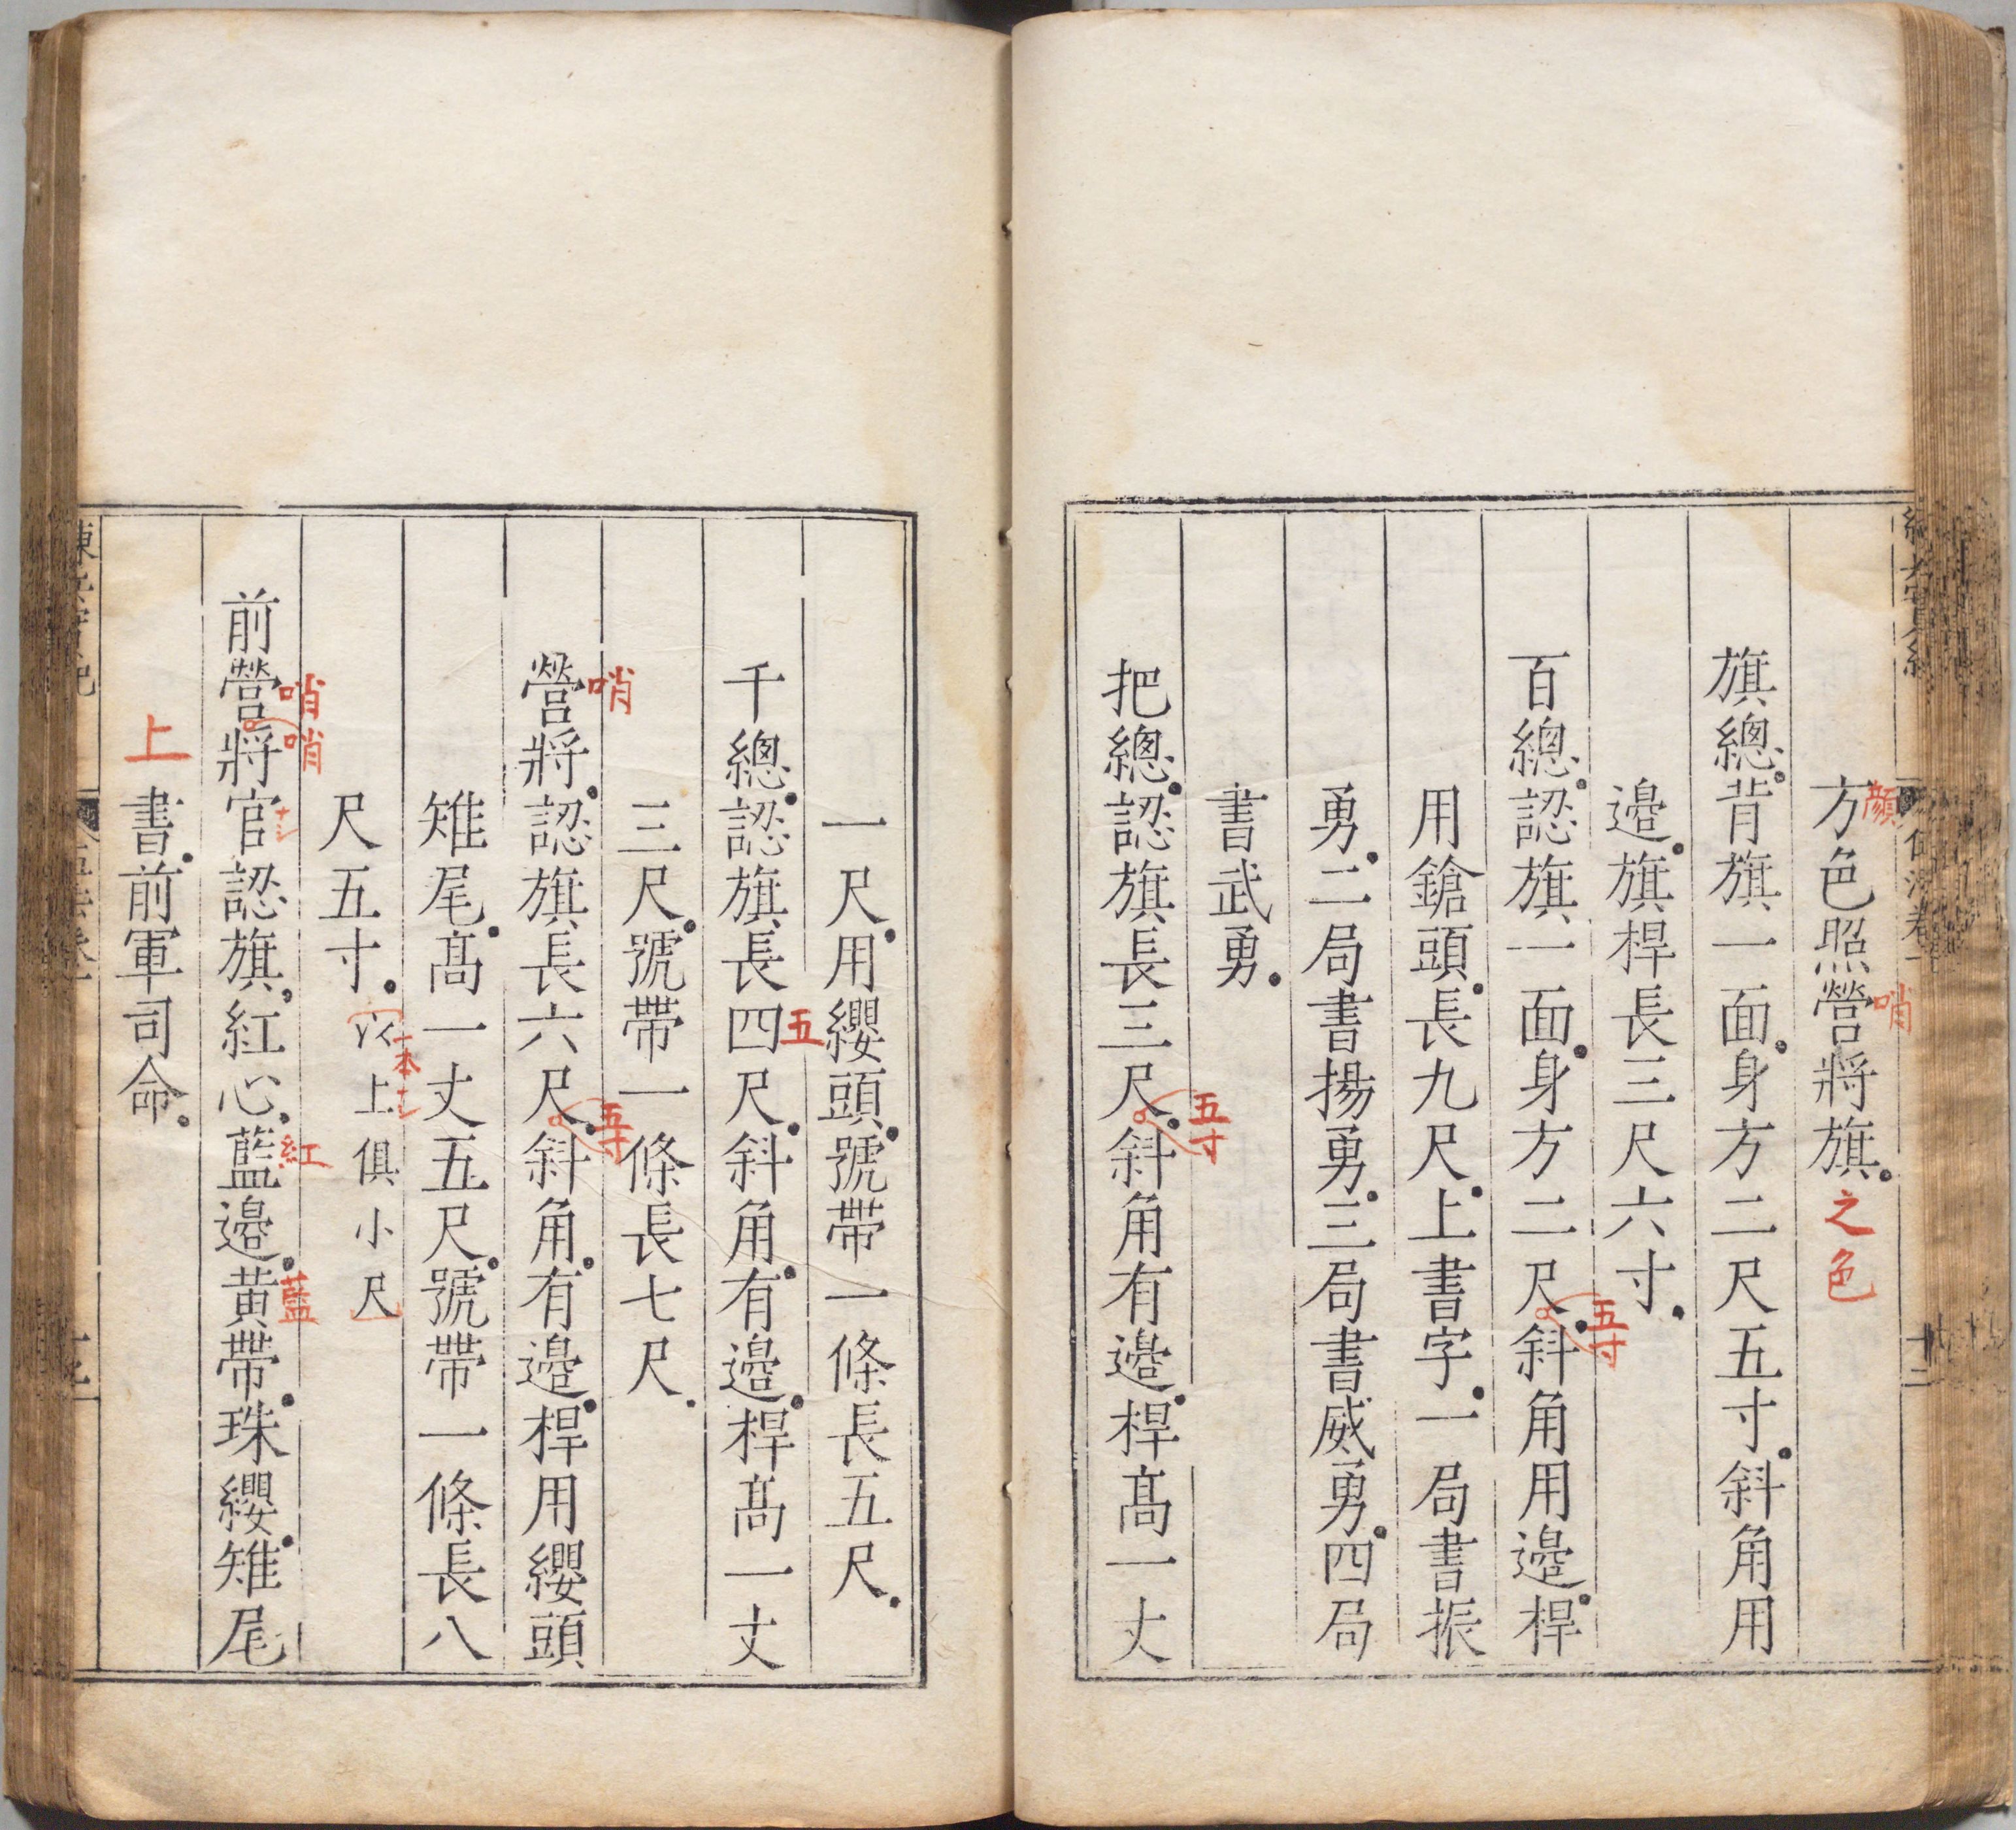 方色照營將旗之色
顏
哨
旗總背旗一面身方二尺五寸斜角用
邊旗桿長三尺六寸
百總認旗一面身方二尺斜角用邊桿
五寸
用鎗頭長九尺上書字一局書振
勇二局書揚勇三局書威勇四局
書武勇
把總認旗長三尺斜角有邊桿高一丈
五寸
一尺用纓頭號帶一條長五尺
千總認旗長四尺斜角有邊桿高一丈
五
三尺號帶一條長七尺
營將認旗長六尺斜角有邊桿用纓頭
哨
五寸
雉尾高一丈五尺號帶一條長八
尺五寸以上俱小尺
一本ナシ
前營將官認旗紅心藍邊黃帶珠纓雉尾
哨
哨
ナシ
紅
藍
上書前軍司命